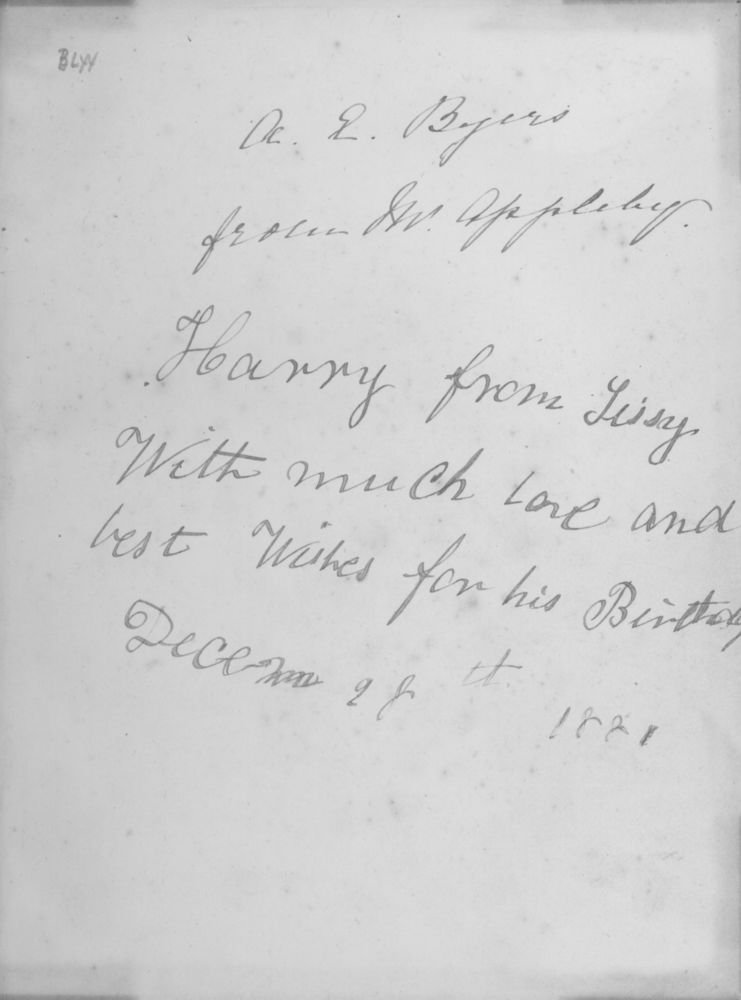 BLYY
A. E. Byers
from Mr. Appleby.
Harry from Lissy
With much love and
best Wishes for his Birthday
28th 1881